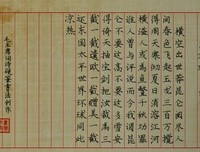 橫空出世莽昆侖閱盡人
間春色飛起玉龍三百萬攪
得周天寒徹夏日消溶江河
橫溢人或為魚鱉千秋功罪
誰人曾與評說而今我謂昆
侖不要這高不要這多雪安
得倚天抽寶劍把汝裁為三
截一截遺歐一截贈美一截
還東國太平世界環球同此
涼熱
毛主席詩詞硬筆書法創作